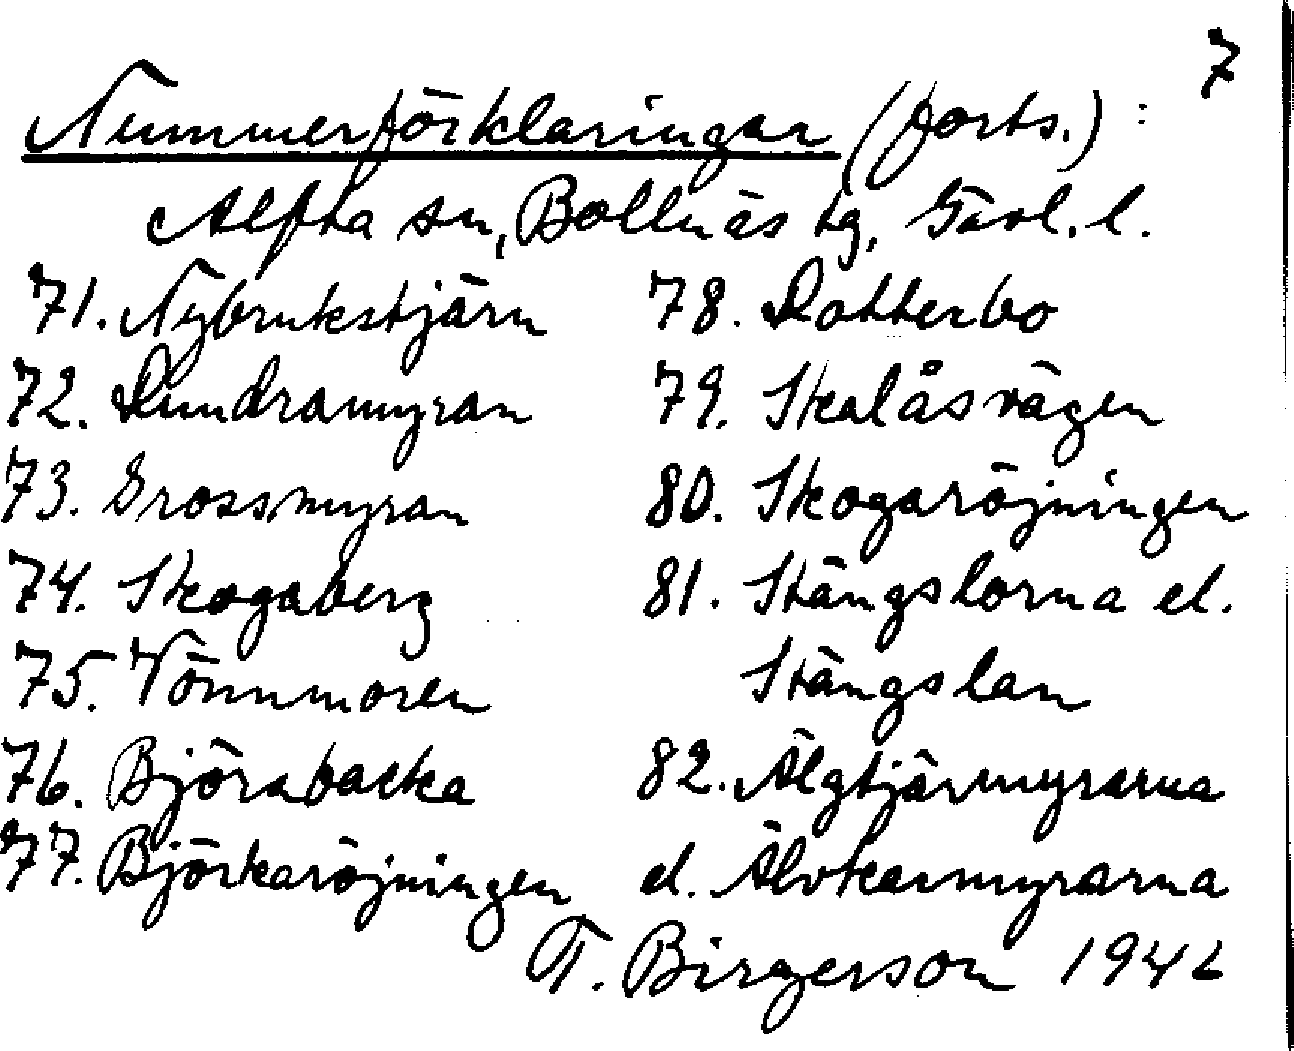 7
Nummerförklaringar (forts.):
Alfta sn, Bollnäs tg, Gävl. l.
71. Nybrukstjärn
72. Lundramyran
73. Grossmyran
74. Skogaberg
75. Tönnmoren
76. Björabacka
77. Björkaröjningen
78. Lotterbo
79. Skalåsvägen
80. Skogaröjningen
81. Stängslorna el.
Stängslan
82. Älgtjärnmyrarna
el. Älvkarmyrarna
T. Birgerson 1942